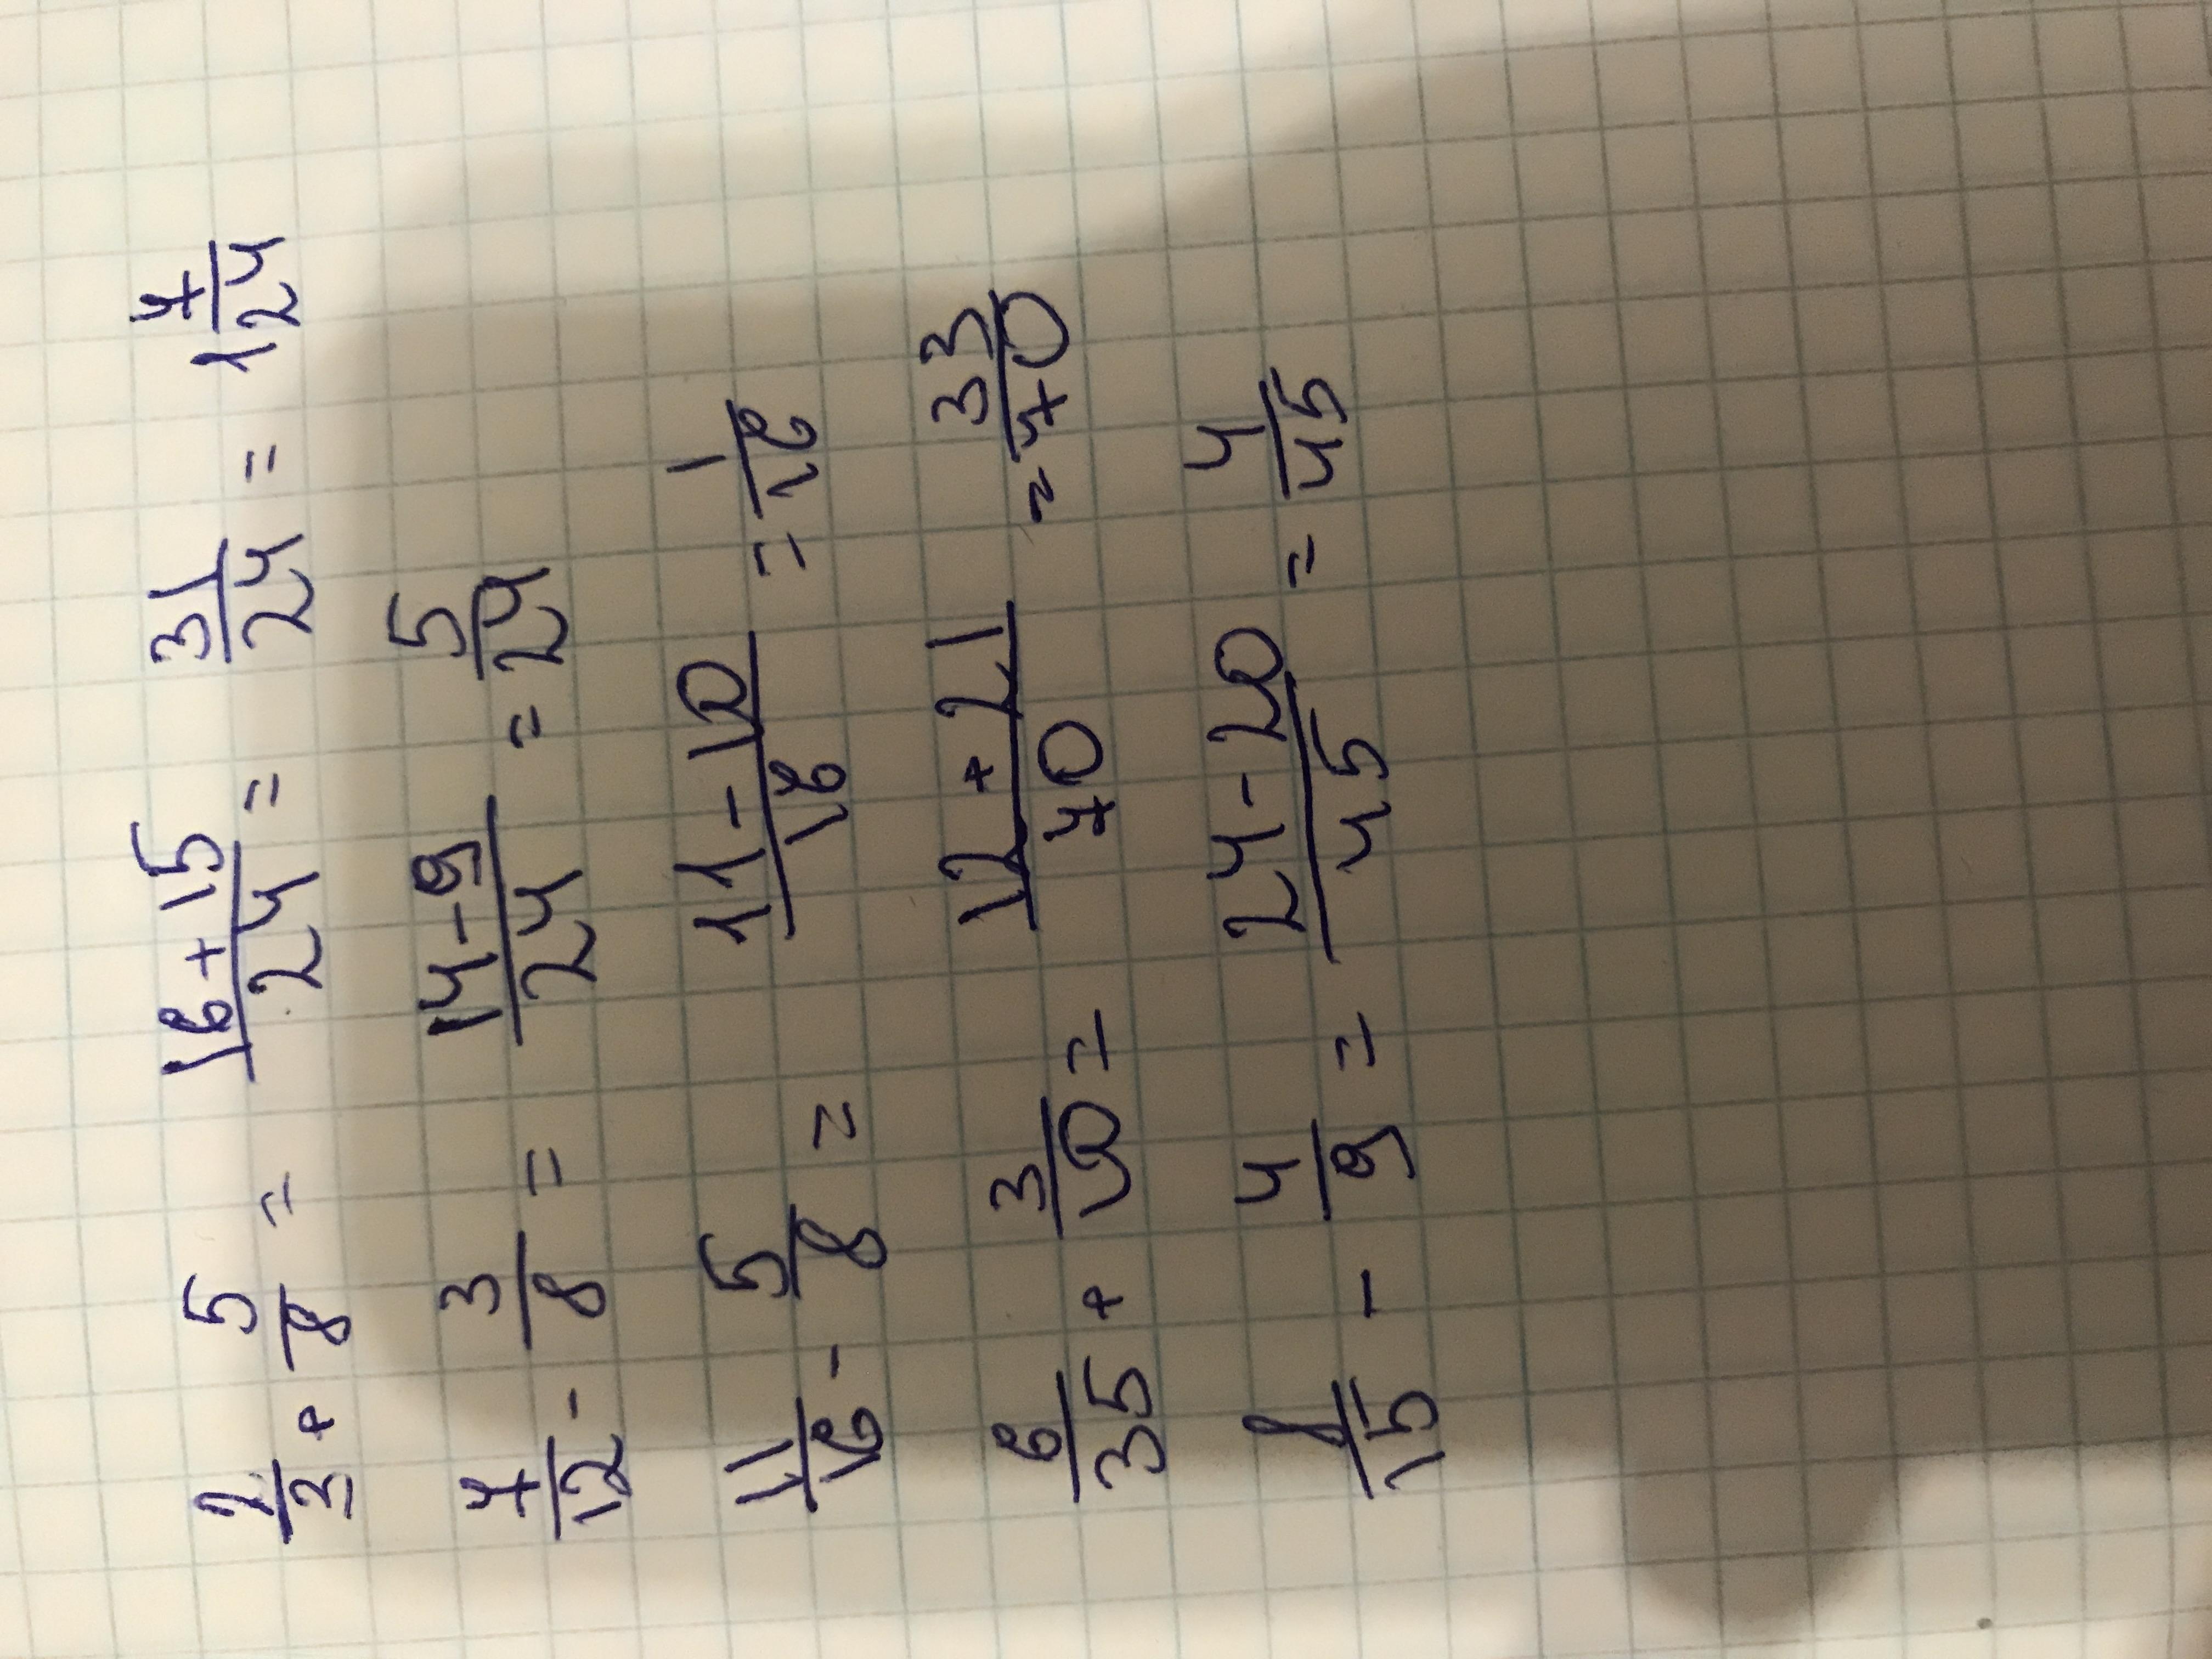 2/3 + 5/8 = (16 + 15)/24 = 31/24 = 1 7/24
7/12 - 3/8 = (14 - 9)/24 = 5/24
11/16 - 5/8 = (11 - 10)/16 = 1/16
6/35 + 3/10 = (12 + 21)/70 = 33/70
8/15 - 4/9 = (24 - 20)/45 = 4/45